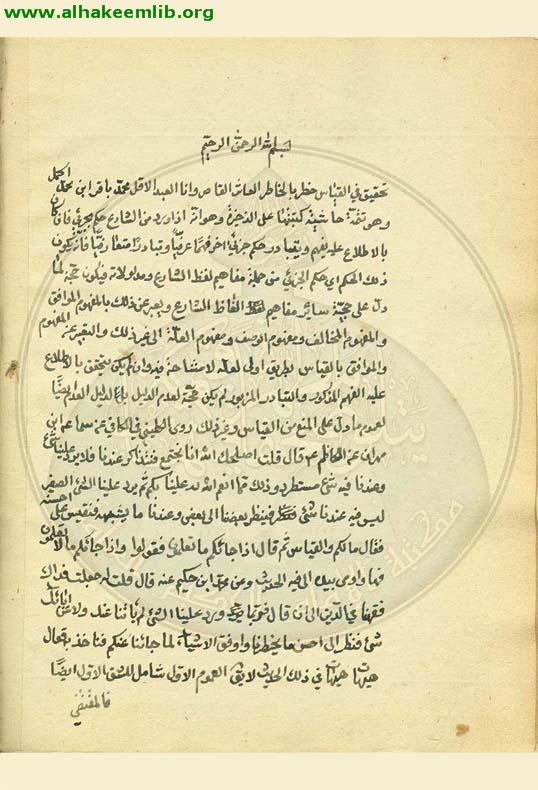 www.alhakeemlib.org
بسم الله الرحمن الرحيم
تحقيق في القياس خطر بالخاطر القاصر وانا العبد الاقل محمد باقر ابن محمد اكمل
وهو تتمة حاشية كتبتها على الذخيرة وهو انه اذا ورد من الشارع حكم جزئي فان كان
بالاطلاع عليه يفهم ويتبادر حكم جزئي اخر فهما عرفيا وتبادرا فانه يكون
ذلك الحكم اي حكم الجزئي من جملة مفاهيم لفظ الشارع ومدلولاته فيكون حجة لما
دل على حجية ساير مفاهيم الفاظ الشارع ويعبر عن ذلك بالمفهوم الموافق
والمفهوم المخالف ومفهوم الوصف ومفهوم العلة الى غير ذلك والتعبير عن المفهوم
الموافق بالقياس بطريق اولى لعله لا مشاحة فيه وان لم يكن يتحقق بالاطلاع
عليه الفهم المذكور والتبادر المزبور لم يكن حجة لعدم الدليل بل الدليل العدم ايضا
لعموم ما دل على المنع من القياس وغير ذلك روى الكليني في الكافي عن سماعة بن
مهران عن الكاظم ع قال قلت اصلحك الله انا نجتمع فنتذاكر عندنا فلا يرد علينا شئ
وعندنا فيه شئ مستطر وذلك مما انعم الله به علينا بكم ثم يرد علينا الشئ الصغير
ليس فيه عندنا شئ فينظر بعضنا الى بعض وعندنا ما يشبهه فنقيس على احسنه
فقال مالكم والقياس ثم قال اذا جائكم ما تعلمون فقولوا واذا جائكم ما لا تعلمون
فها واومى بيده الى فيه الحديث وعن محمد ابن حكيم عنه قال قلت له جعلت فداك
فقهنا في الدين الى ان قال فربما ورد علينا الشئ لم يأتنا عنك ولا عن ابائك
شئ فنظر الى احسن ما يحضرنا واوفق الاشياء لما جائنا عنكم فناخذ به فقال
هيهات هيهات في ذلك الحديث لا يق العموم الاول شامل للشق الاول ايضا
فالمقتضي